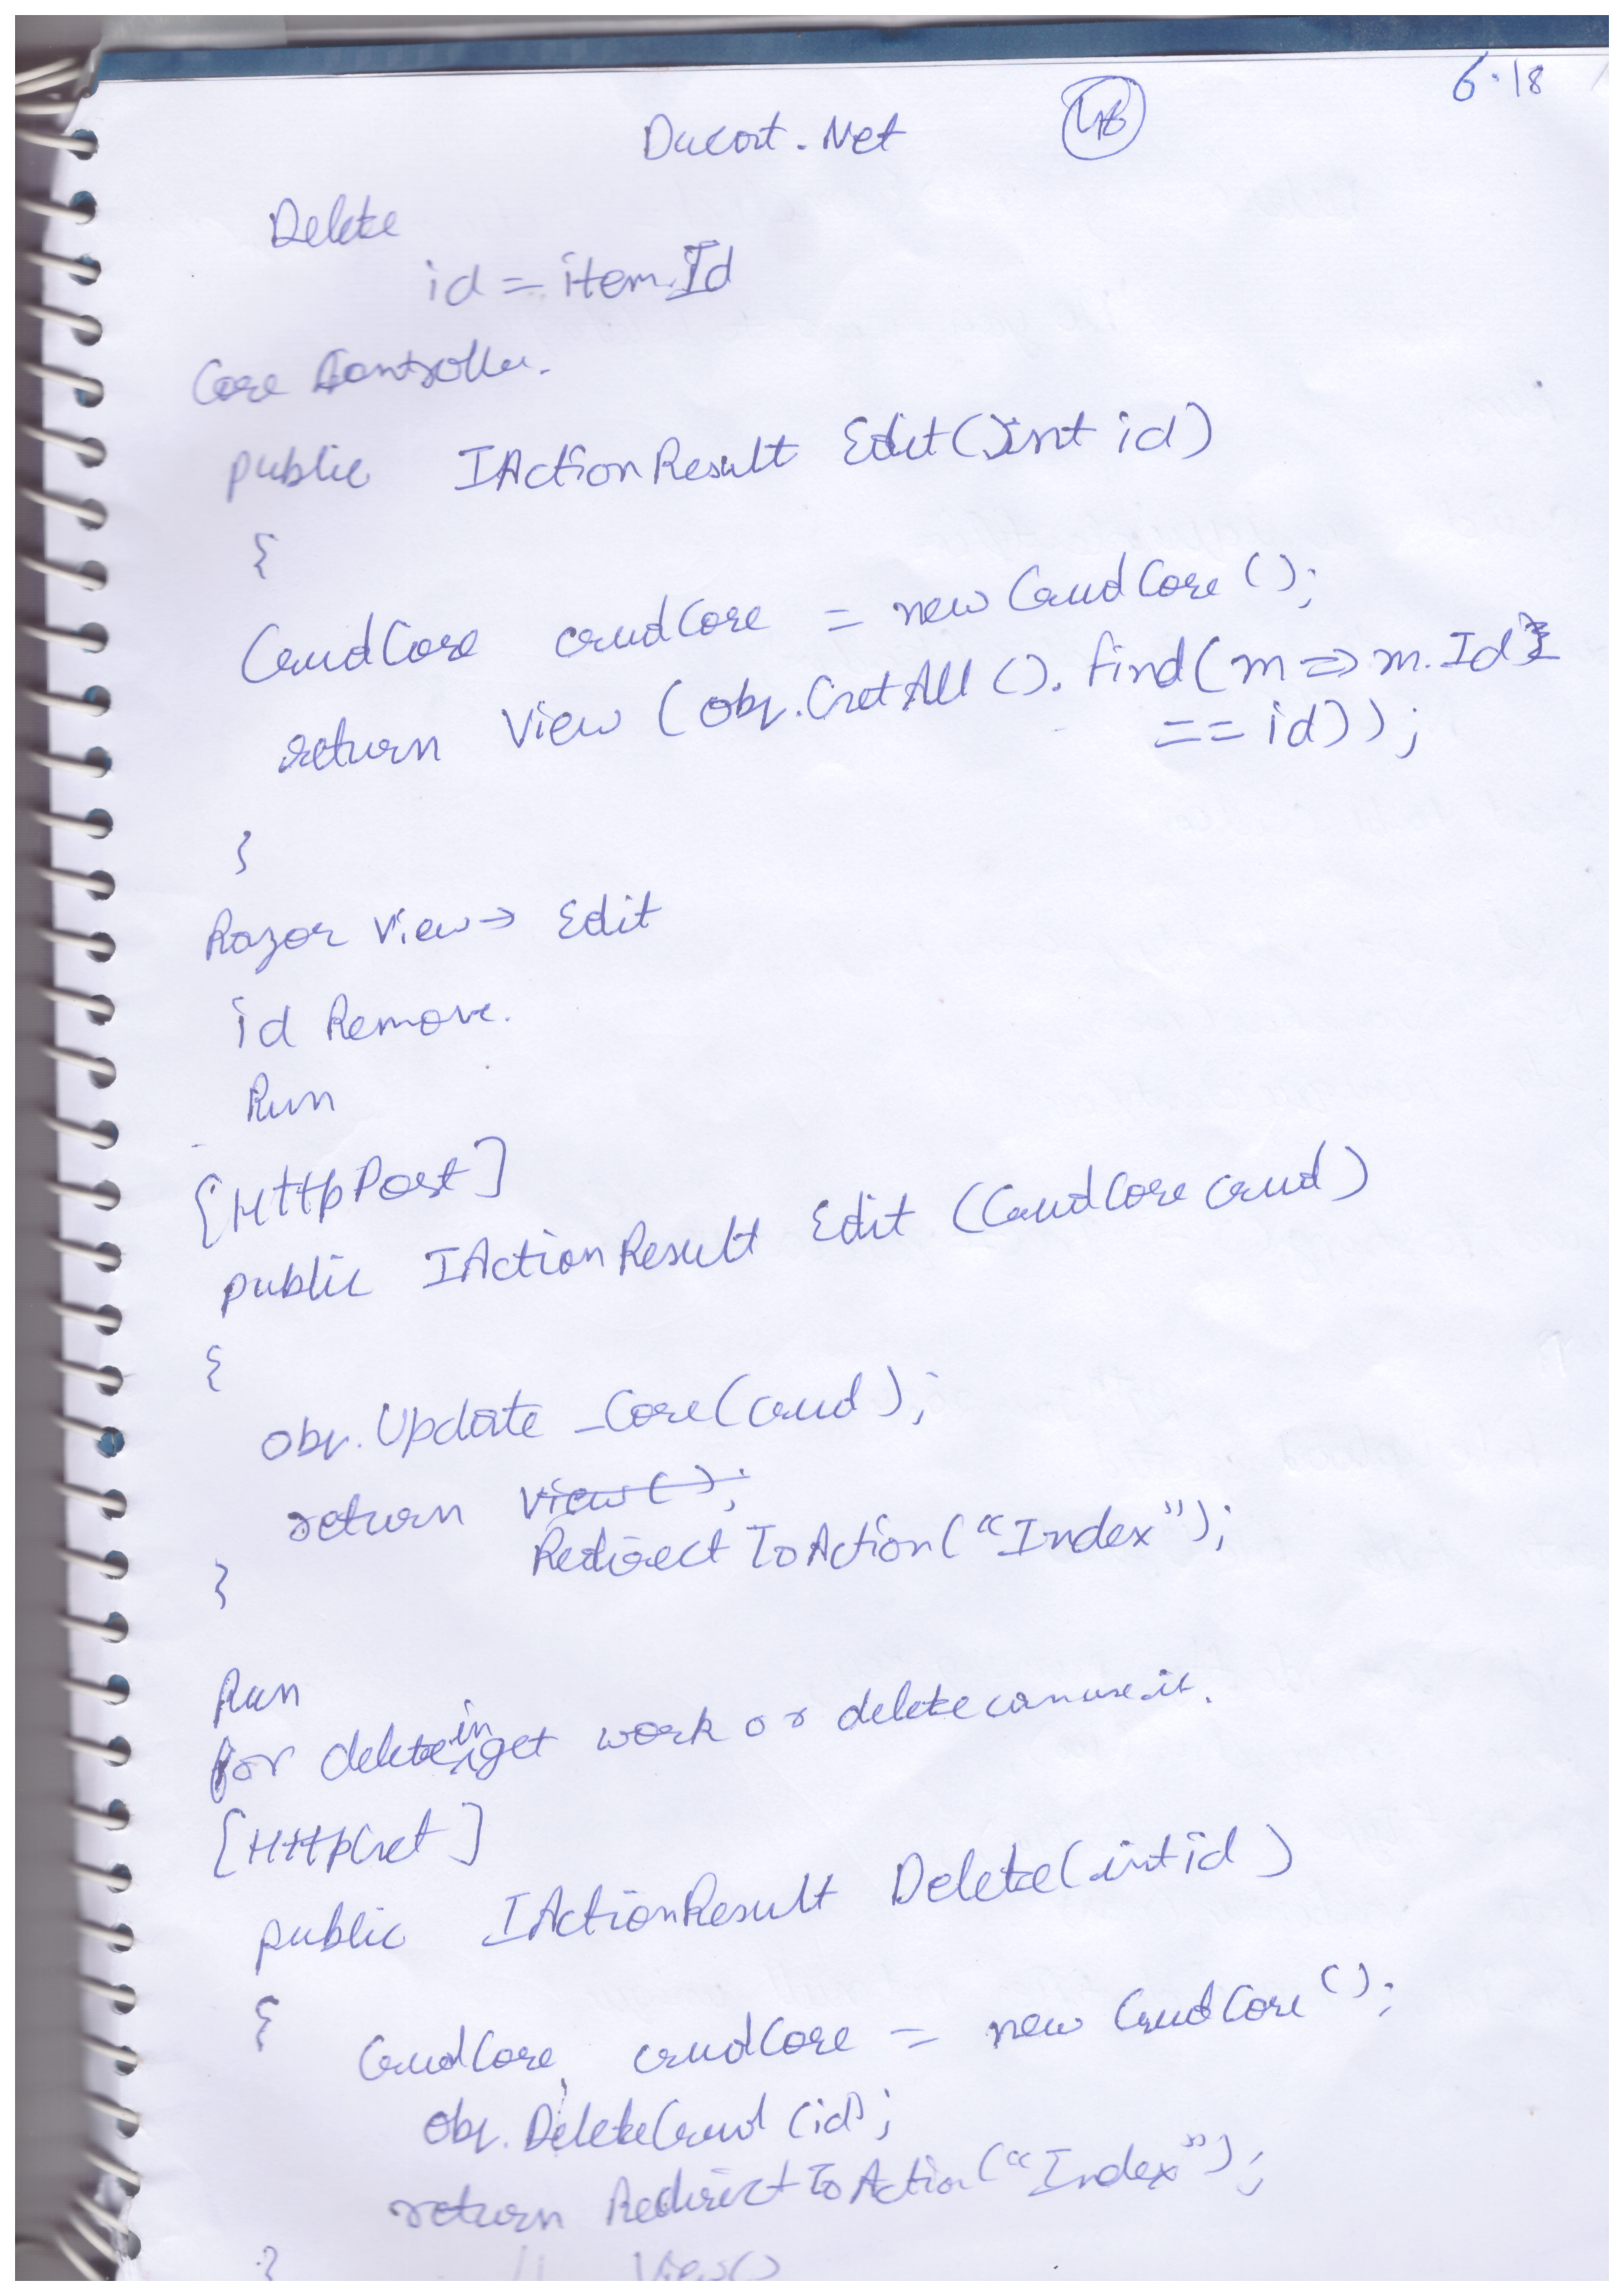 6.18
Ducat.Net
Delete
id = item.Id
Core Controller.
public IActionResult Edit(int id)
{
CrudCore crudCore = new CrudCore();
return View (obj.GetAll().Find(m => m.Id
== id));
}
Razor View → Edit
id Remove.
Run
[HttpPost]
public IActionResult Edit (CrudCore crud)
{
obj.Update_Core(crud);
return View();
RedirectToAction("Index");
}
Run
for delete in get work or delete can use it.
[HttpGet]
public IActionResult Delete(int id)
{
CrudCore crudCore = new CrudCore();
obj.DeleteCrud(id);
return RedirectToAction("Index");
} // View()